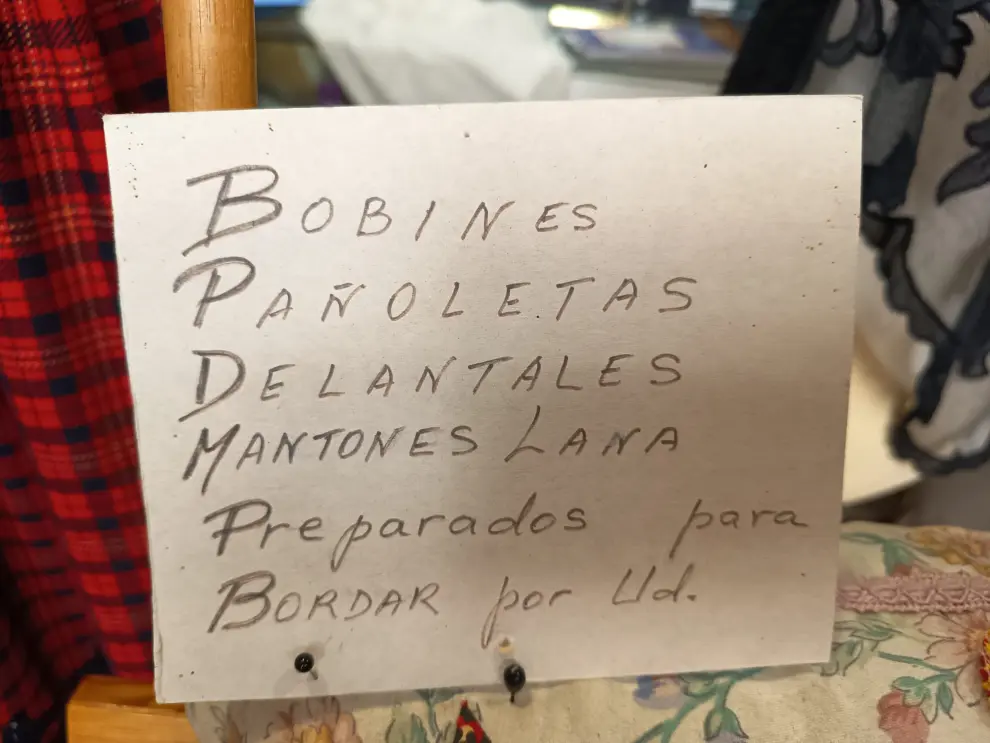 BOBINES
PAÑOLETAS
DELANTALES
MANTONES LANA
Preparados para
BORDAR por Ud.